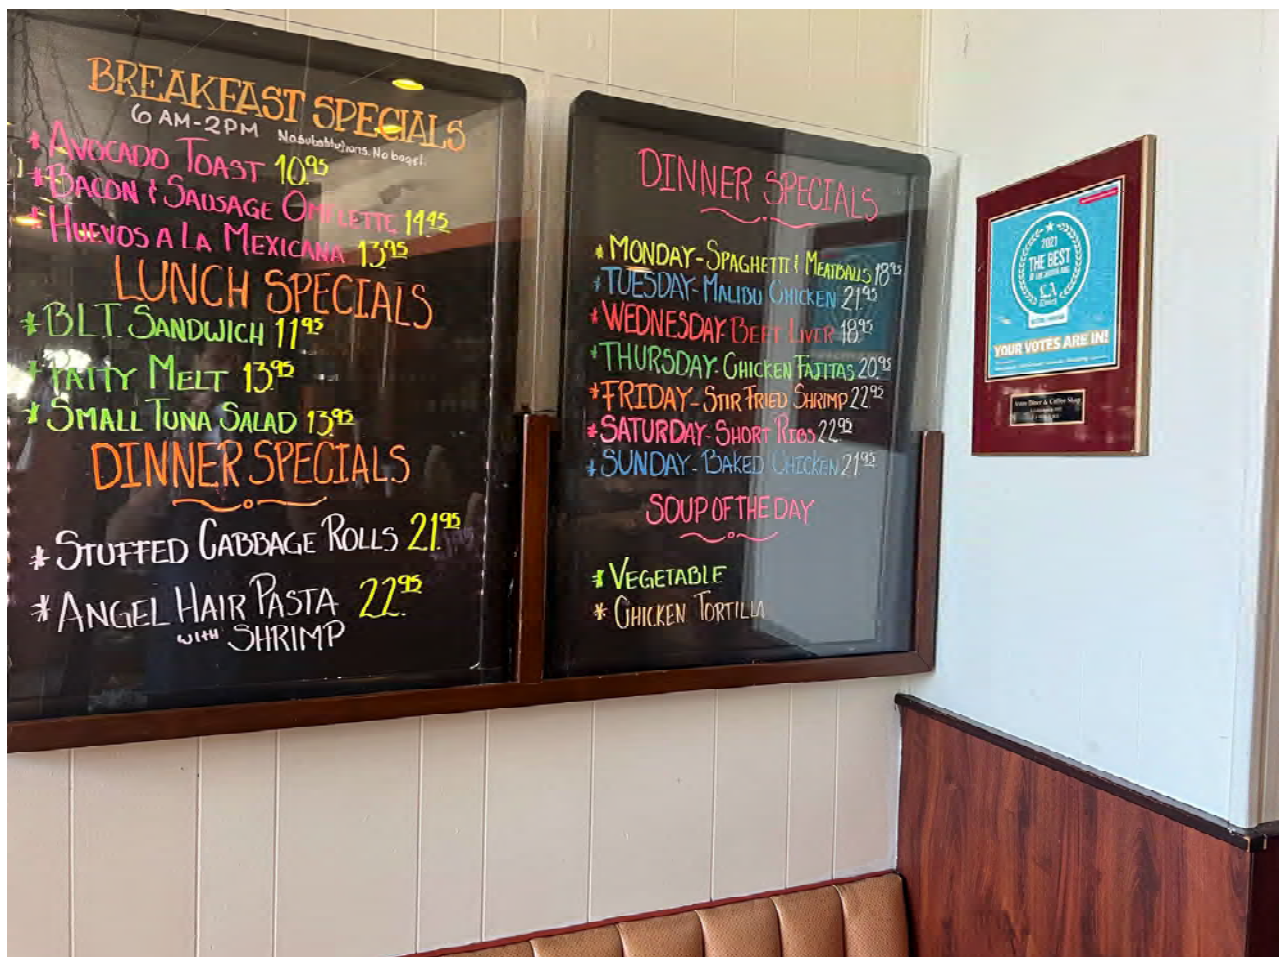 BREAKFAST SPECIALS
6 AM-2PM No substitutions. No bags!
* AVOCADO TOAST 10.95
* BACON & SAUSAGE OMELETTE 14.45
* HUEVOS A LA MEXICANA 13.95
LUNCH SPECIALS
* B.L.T. SANDWICH 11.95
* PATTY MELT 13.95
* SMALL TUNA SALAD 13.95
DINNER SPECIALS
* STUFFED CABBAGE ROLLS 21.95
* ANGEL HAIR PASTA 22.95
WITH SHRIMP
DINNER SPECIALS
* MONDAY-SPAGHETTI & MEATBALLS 18.95
* TUESDAY-MALIBU CHICKEN 21.95
* WEDNESDAY-BEEF LIVER 18.95
* THURSDAY-CHICKEN FAJITAS 20.95
* FRIDAY-STIR FRIED SHRIMP 22.95
* SATURDAY-SHORT RIBS 22.95
* SUNDAY-BAKED CHICKEN 21.95
SOUP OF THE DAY
* VEGETABLE
* CHICKEN TORTILLA
2021
THE BEST
YOUR VOTES ARE IN!
Diner & Coffee Shop